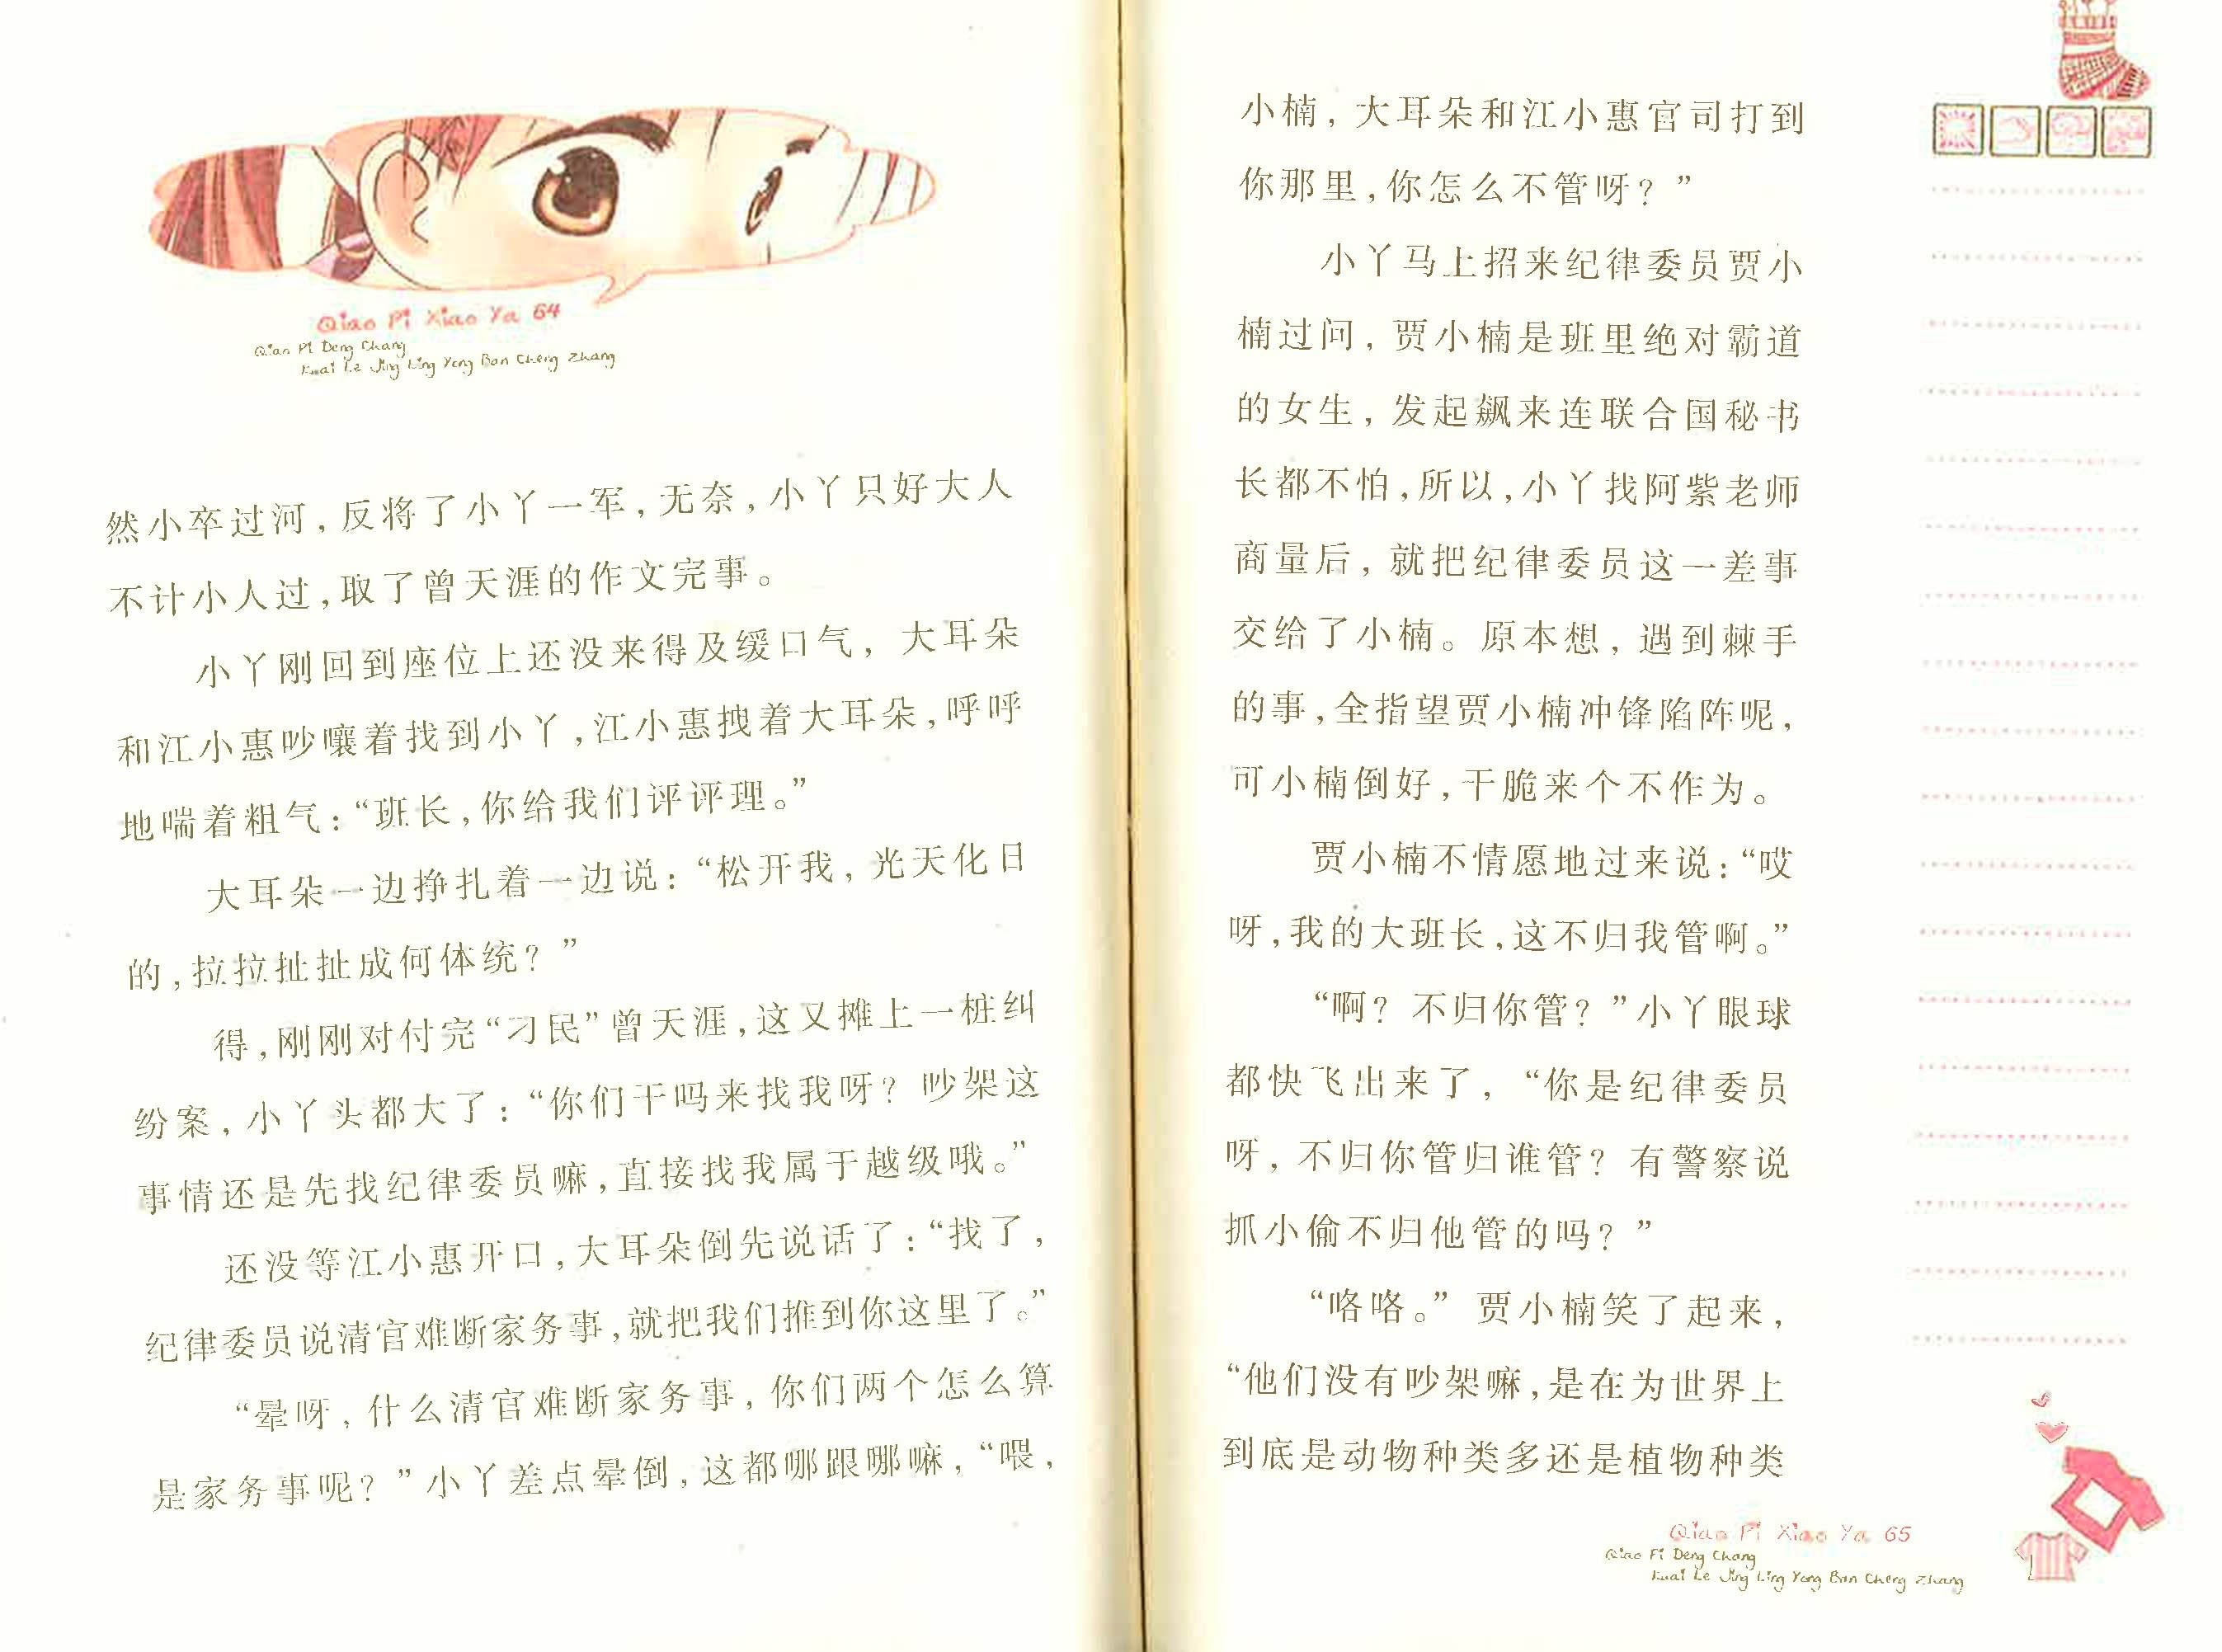 Qiao Pi Xiao Ya 64
Qiao Pi Deng Chang
Kuai Le Jing Ling Yong Ban Cheng Zhang
然小卒过河，反将了小丫一军，无奈，小丫只好大人
不计小人过，取了曾天涯的作文完事。
小丫刚回到座位上还没来得及缓口气，大耳朵
和江小惠吵嚷着找到小丫，江小惠拽着大耳朵，呼呼
地喘着粗气：“班长，你给我们评评理。”
大耳朵一边挣扎着一边说：“松开我，光天化日
的，拉拉扯扯成何体统？”
得，刚刚对付完“刁民”曾天涯，这又摊上一桩纠
纷案，小丫头都大了：“你们干吗来找我呀？吵架这
事情还是先找纪律委员嘛，直接找我属于越级哦。”
还没等江小惠开口，大耳朵倒先说话了：“找了，
纪律委员说清官难断家务事，就把我们推到你这里了。”
“晕呀，什么清官难断家务事，你们两个怎么算
是家务事呢？”小丫差点晕倒，这都哪跟哪嘛，“喂，
小楠，大耳朵和江小惠官司打到
你那里，你怎么不管呀？”
小丫马上招来纪律委员贾小
楠过问，贾小楠是班里绝对霸道
的女生，发起飙来连联合国秘书
长都不怕，所以，小丫找阿紫老师
商量后，就把纪律委员这一差事
交给了小楠。原本想，遇到棘手
的事，全指望贾小楠冲锋陷阵呢，
可小楠倒好，干脆来个不作为。
贾小楠不情愿地过来说：“哎
呀，我的大班长，这不归我管啊。”
“啊？不归你管？”小丫眼球
都快飞出来了，“你是纪律委员
呀，不归你管归谁管？有警察说
抓小偷不归他管的吗？”
“咯咯。”贾小楠笑了起来，
“他们没有吵架嘛，是在为世界上
到底是动物种类多还是植物种类
Qiao Pi Xiao Ya 65
Qiao Pi Deng Chang
Kuai Le Jing Ling Yong Ban Cheng Zhang